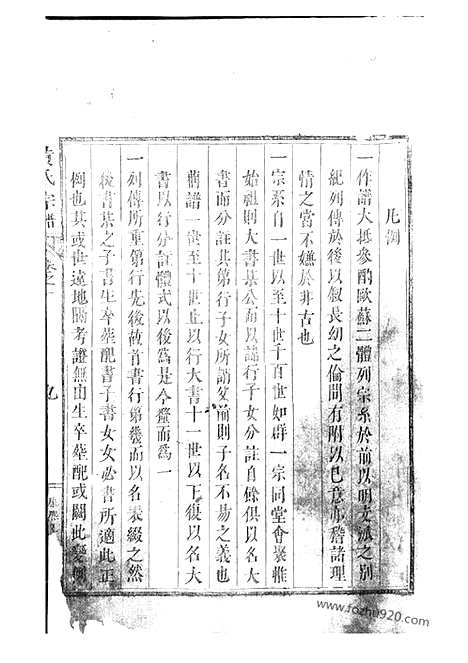 凡例
一作譜大抵參酌歐蘇二體列宗系於前以明支派之別
紀列傳於後以叙長幼之倫間有附以己意亦酌諸理
情之當不嫌於非古也
一宗系自一世以至十世千百世如群一宗同堂會聚惟
始祖則大書某公而以諱行子女分註自餘俱以名大
書而分註其第行子女所謂父前則子名不易之義也
舊譜一世至十世止以行大書十一世以下復以名大
書以行分註體式以後為是今釐而為一
一列傳所重第行先後故首書行第幾而以名表綴之然
後書某之子書生卒葬配書子書女女必書所適此正
例也其或世遠地隔考證無由生卒葬配或闕此變例
袁氏宗譜 卷之一
九
www.fozhu920.com